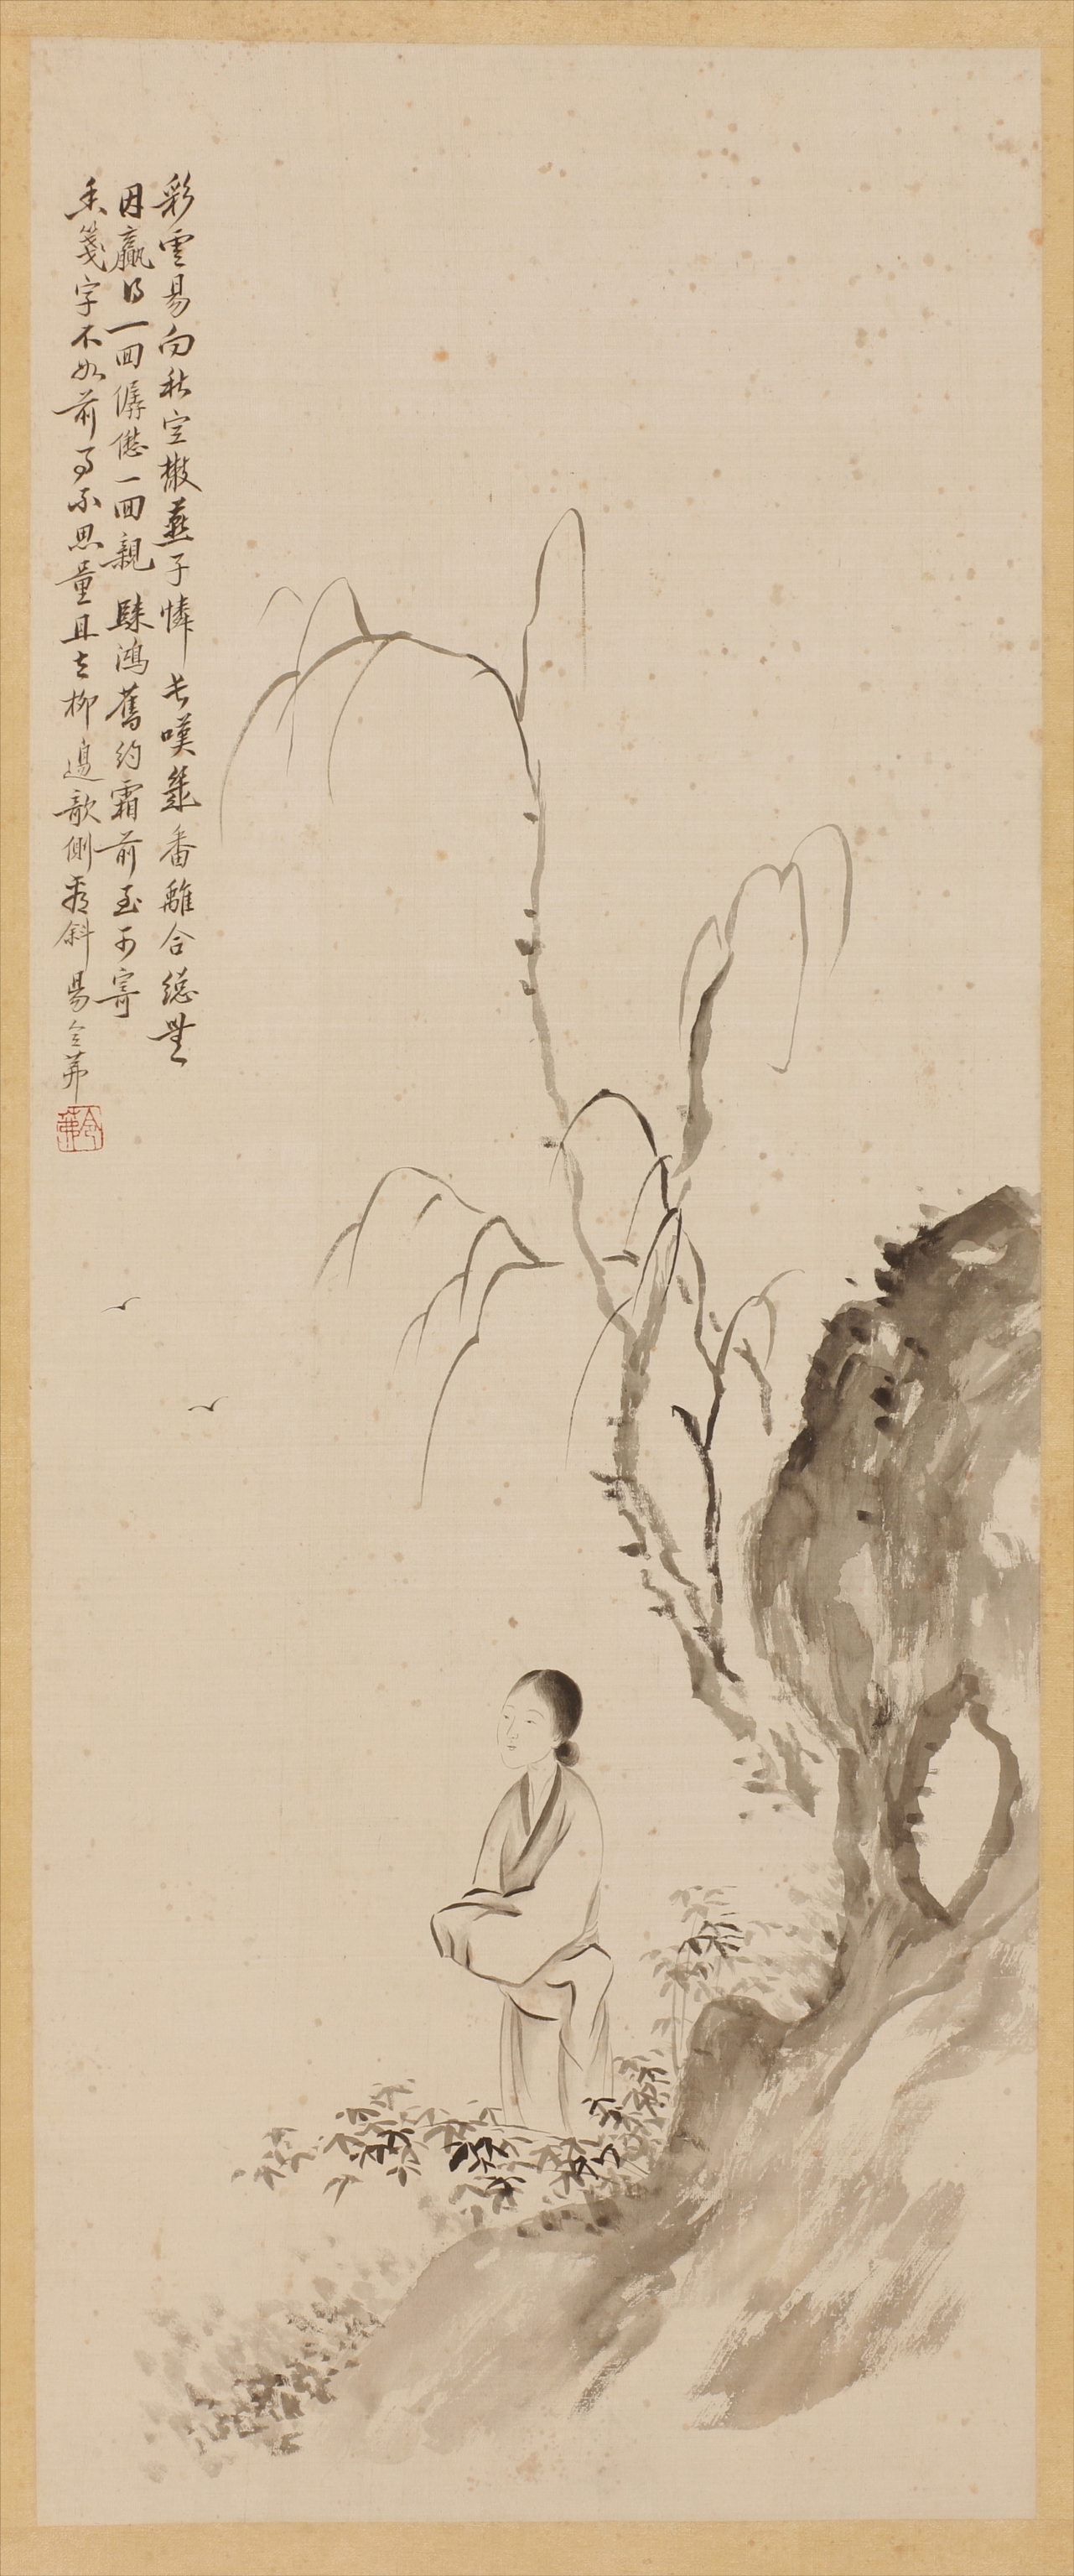 彩雲易向秋空散燕子憐長嘆幾番離合總無
因贏得一回僝僽一回親歸鴻舊約霜前至可寄
香箋字不如前事不思量且立柳邊欹側看斜昜令茀
令茀